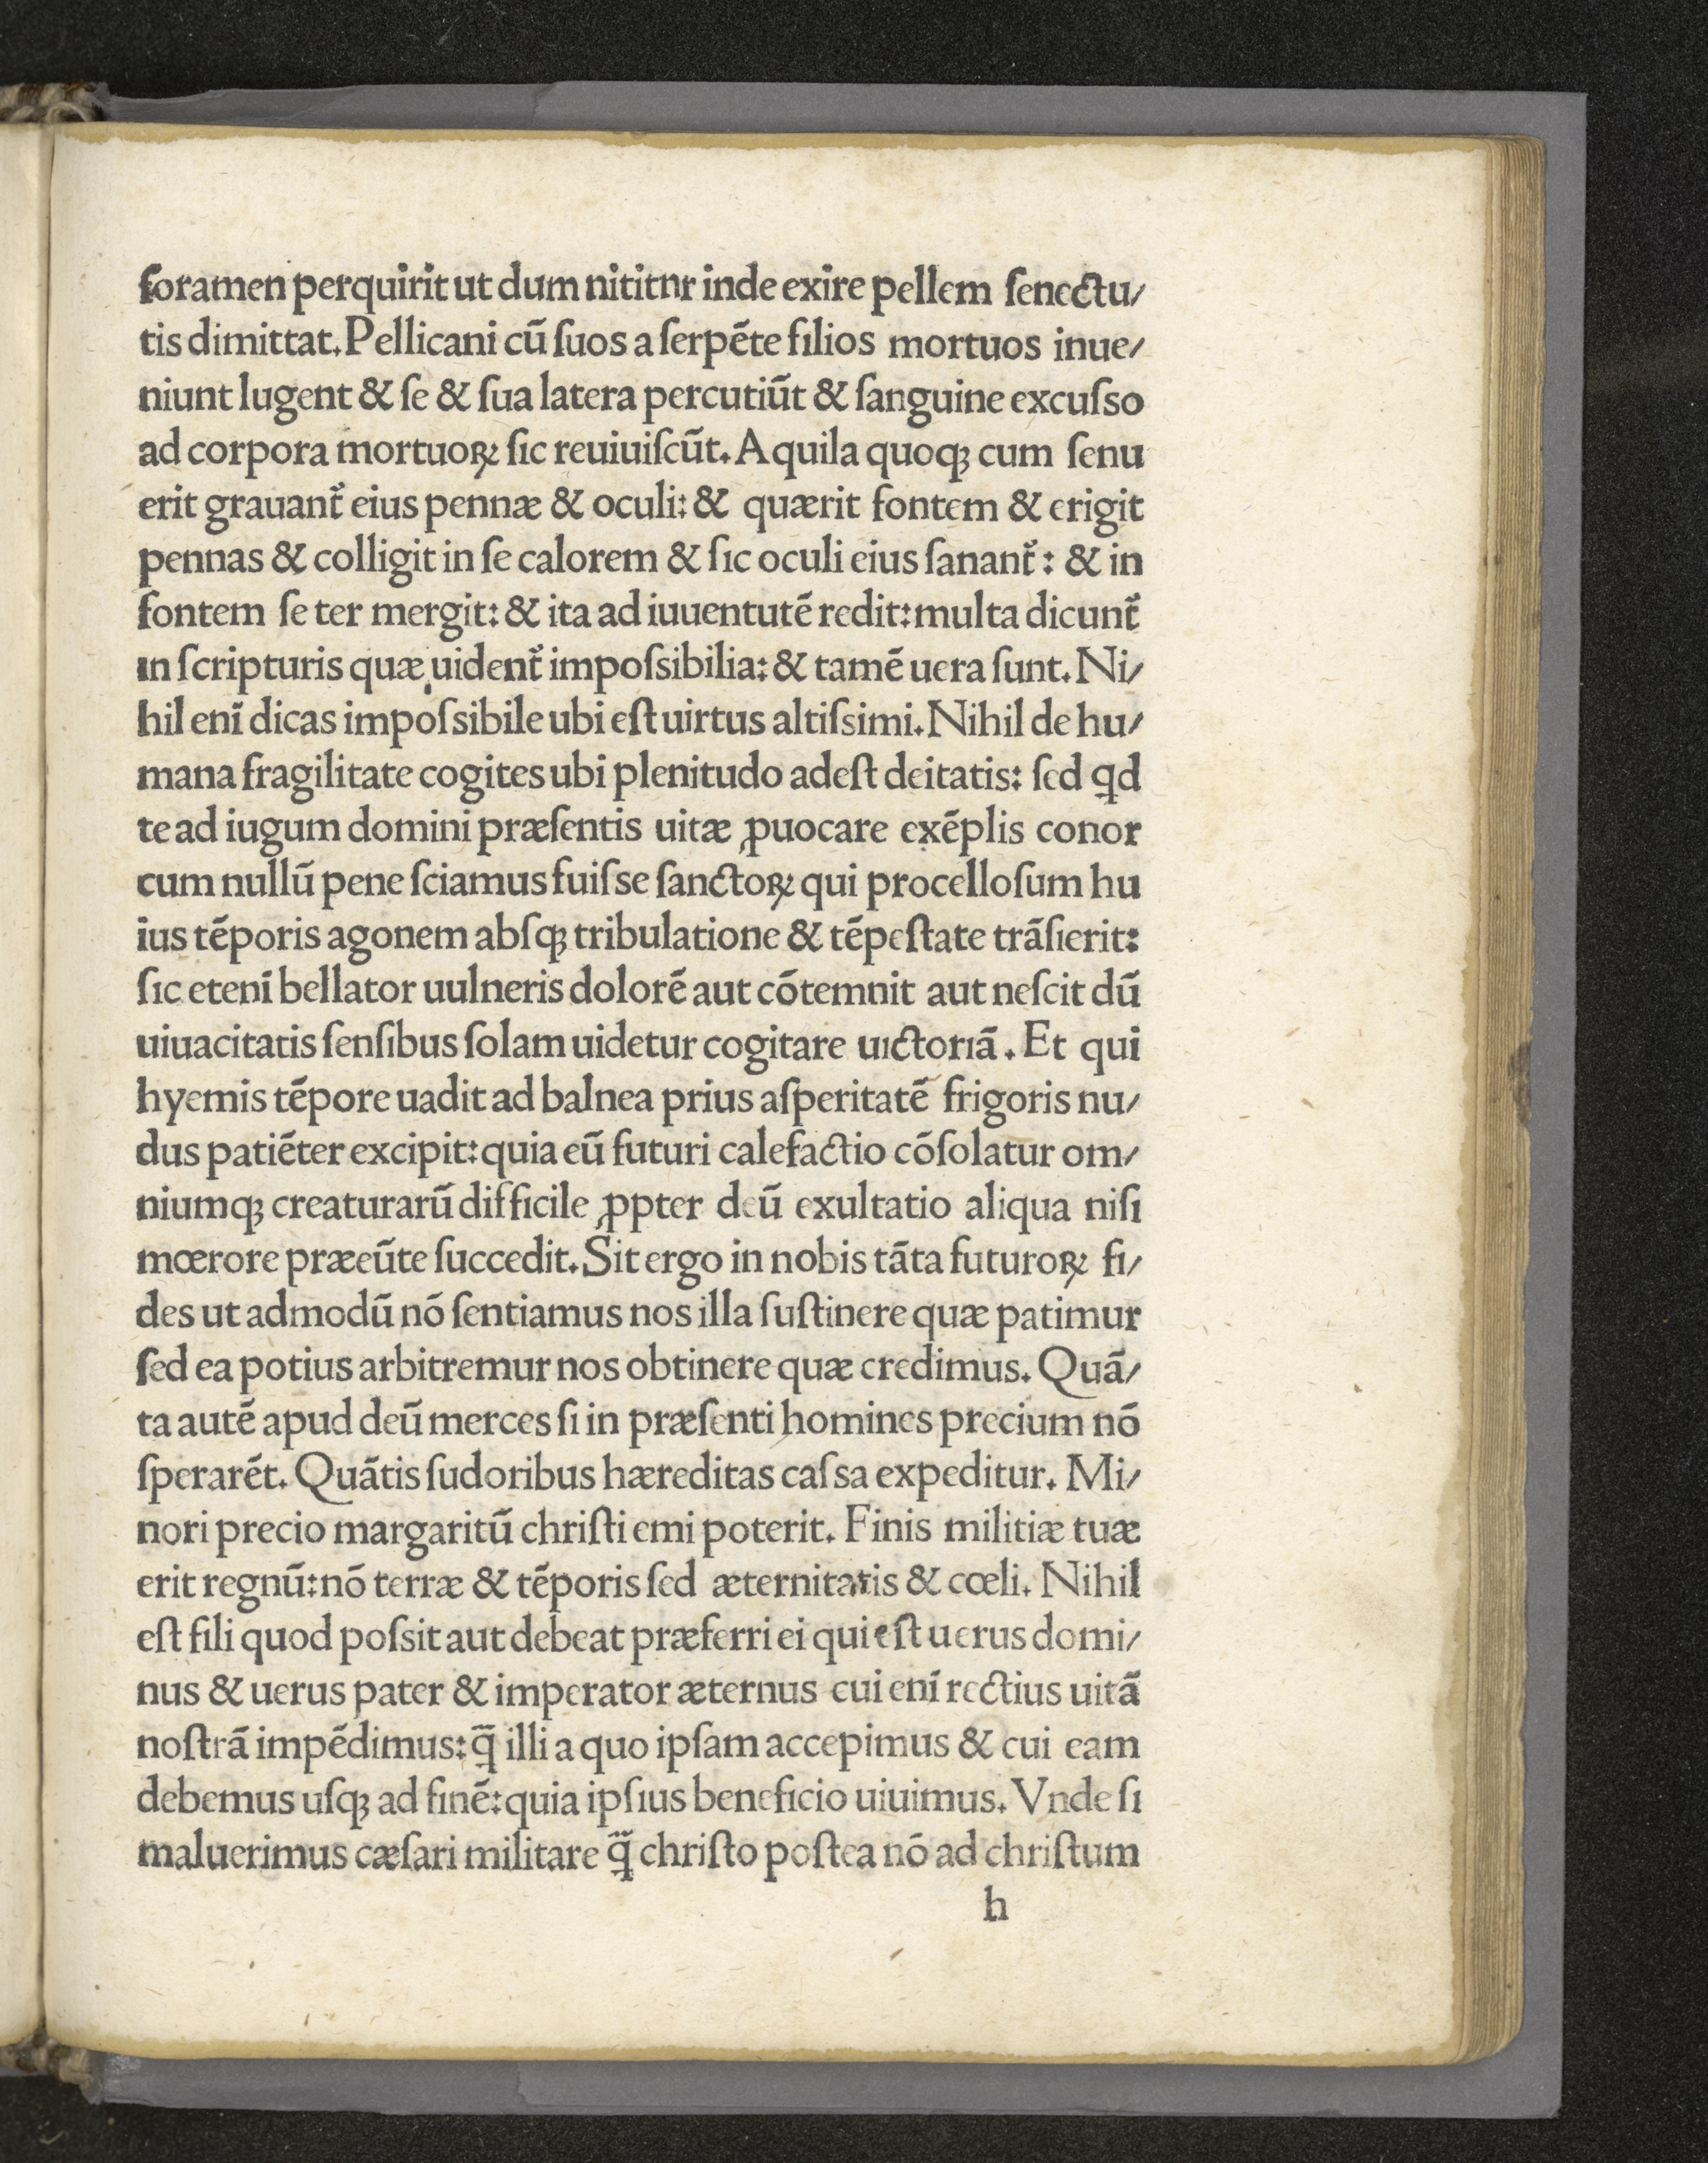 foramen perquirit ut dum nititnr inde exire pellem ſenectu/
tis dimittat. Pellicani cū ſuos a ſerpēte filios mortuos inue/
niunt lugent & ſe & ſua latera percutiūt & ſanguine excuſso
ad corpora mortuoꝝ ſic reuiuiſcūt. Aquila quoqꝫ cum ſenu
erit grauant᷑ eius pennæ & oculi: & quærit fontem & erigit
pennas & colligit in ſe calorem & ſic oculi eius ſanant᷑ : & in
fontem ſe ter mergit: & ita ad iuuentutē redit: multa dicunt᷑
in ſcripturis quæ uident᷑ impoſsibilia: & tamē uera ſunt. Ni/
hil enī dicas impoſsibile ubi eſt uirtus altiſsimi. Nihil de hu/
mana fragilitate cogites ubi plenitudo adeſt deitatis: ſed ꝙd
te ad iugum domini præſentis uitæ ꝓuocare exēplis conor
cum nullū pene ſciamus fuiſse ſanctoꝝ qui procelloſum hu
ius tēporis agonem abſqꝫ tribulatione & tēpeſtate trāſierit:
ſic etenī bellator uulneris dolorē aut cōtemnit aut neſcit dū
uiuacitatis ſenſibus ſolam uidetur cogitare uıctorıā . Et qui
hyemis tēpore uadit ad balnea prius aſperitatē frigoris nu/
dus patiēter excipit: quia eū futuri calefactio cōſolatur om/
niumqꝫ creaturarū difficile ꝓpter deū exultatio aliqua niſi
mœrore præeūte ſuccedit. Sit ergo in nobis tāta futuroꝝ fi/
des ut admodū nō ſentiamus nos illa ſuſtinere quæ patimur
ſed ea potius arbitremur nos obtinere quæ credimus. Quā/
ta autē apud deū merces ſi in præſenti homines precium nō
ſperarēt. Quātis ſudoribus hæreditas caſsa expeditur. Mi/
nori precio margaritū chriſti emi poterit. Finis militiæ tuæ
erit regnū: nō terræ & tēporis ſed æternitatis & cœli. Nihil
eſt fili quod poſsit aut debeat præferri ei qui eſt uerus domi/
nus & uerus pater & imperator æternus cui enī rectius uitā
noſtrā impēdimus: q̄̃ illi a quo ipſam accepimus & cui eam
debemus uſqꝫ ad finē: quia ipſius beneficio uiuimus. Vnde ſi
maluerimus cæſari militare q̄̃ chriſto poſtea nō ad chriſtum
h